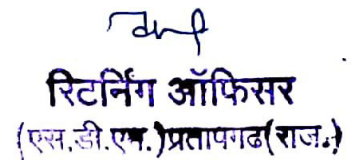 रिटर्निंग ऑफिसर
(एस.डी.एम.)प्रतापगढ(राज.)